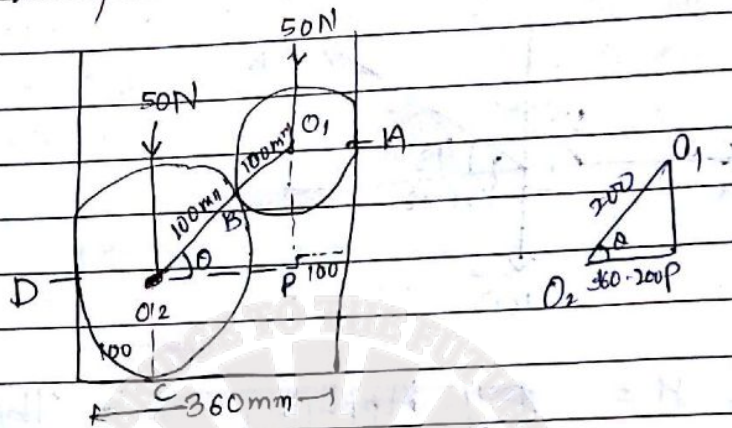 50N
50N
O1
A
100mm
100mm
B
θ
P
100
D
O2
100
C
360mm
O1
200
θ
O2
360-200
P
BRIDGE TO THE FUTURE